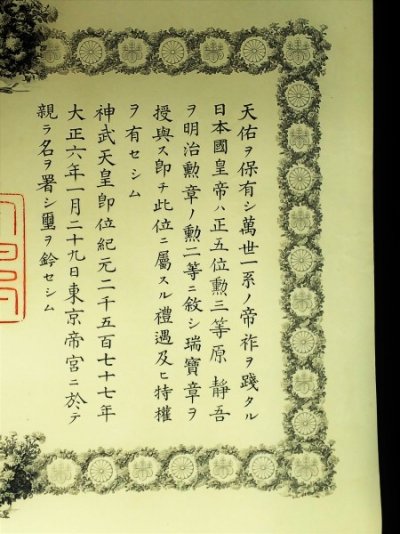 天佑ヲ保有シ萬世一系ノ帝祚ヲ踐タル
日本國皇帝ハ正五位勲三等原靜吾
ヲ明治勲章ノ勲二等ニ敍シ瑞寶章ヲ
授與ス即チ此位ニ屬スル禮遇及ヒ特權
ヲ有セシム
神武天皇即位紀元二千五百七十七年
大正六年一月二十九日東京帝宮ニ於テ
親ラ名ヲ署シ璽ヲ鈐セシム